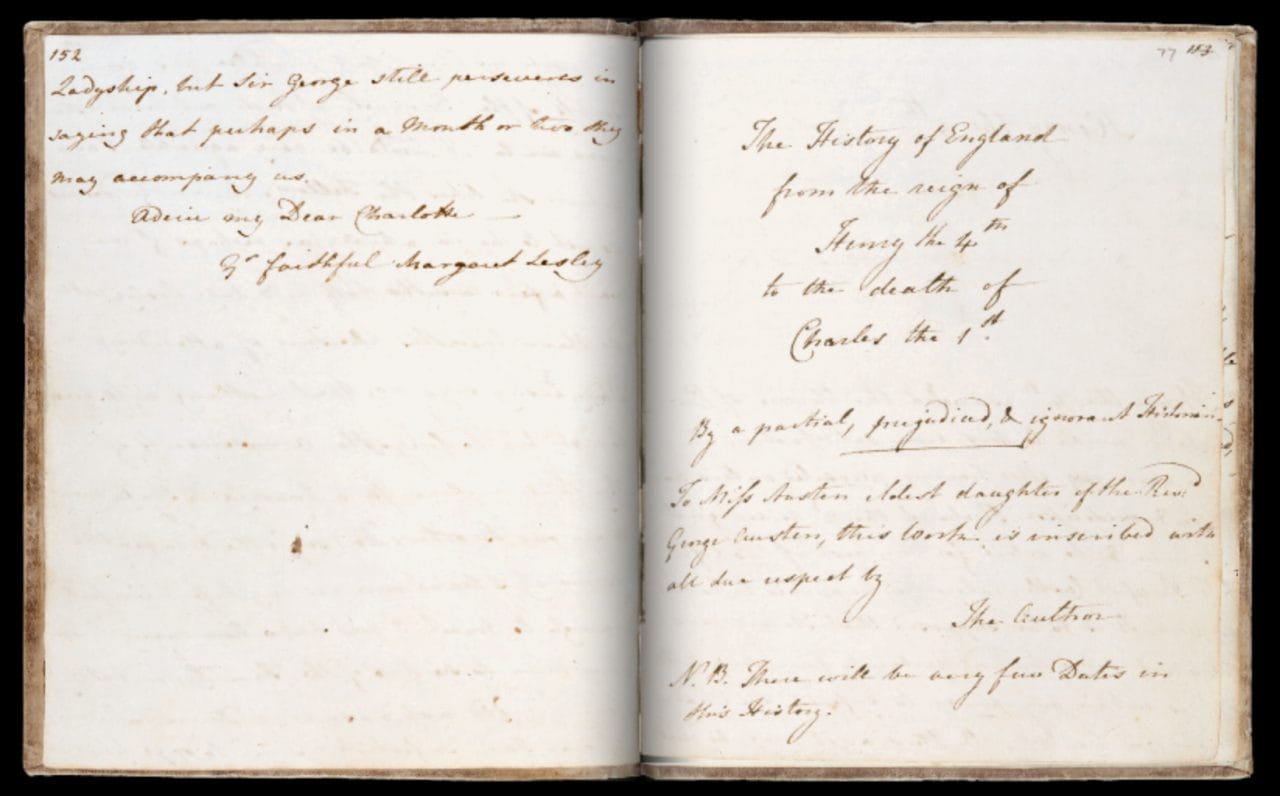 152
Ladyship, but Sir George still perseveres in
saying that perhaps in a Month or two, they
may accompany us.
Adeiu my Dear Charlotte —
Yr faithful Margaret Lesley
77 153
The History of England
from the reign of
Henry the 4th
to the death of
Charles the 1st.
By a partial, prejudiced, & ignorant Historian.
To Miss Austen eldest daughter of the Revd
George Austen, this Work is inscribed with
all due respect by
The Author
N.B. There will be very few Dates in
this History.